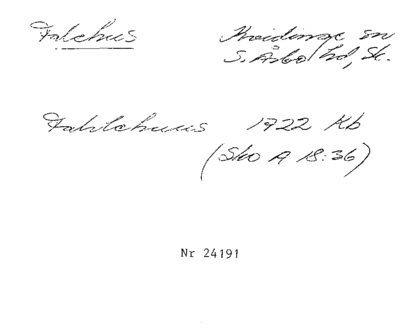 Falchus Kvidinge sn
S. Åsbo hd, Sk.
Fahlehuus 1722 Kb
(Sko A 18:36)
Nr 24191